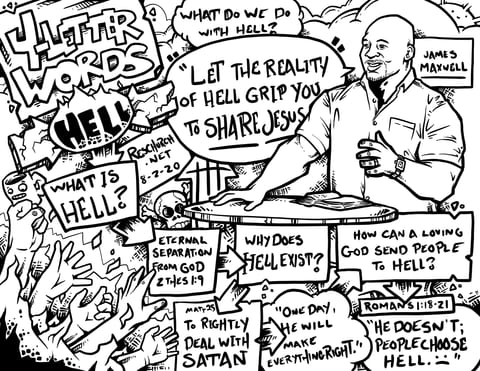 4-LETTER
WORDS
HELL
WHAT DO WE DO
WITH HELL?
"LET THE REALITY
OF HELL GRIP YOU
TO SHARE JESUS"
JAMES
MAXWELL
RESCHURCH
.NET
8-2-20
WHAT IS
HELL?
ETERNAL
SEPARATION
FROM GOD
2 THES 1:9
WHY DOES
HELL EXIST?
HOW CAN A LOVING
GOD SEND PEOPLE
TO HELL?
MAT. 25
TO RIGHTLY
DEAL WITH
SATAN
"ONE DAY,
HE WILL
MAKE
EVERYTHING RIGHT."
ROMANS 1:18-21
"HE DOESN'T;
PEOPLE CHOOSE
HELL. :("